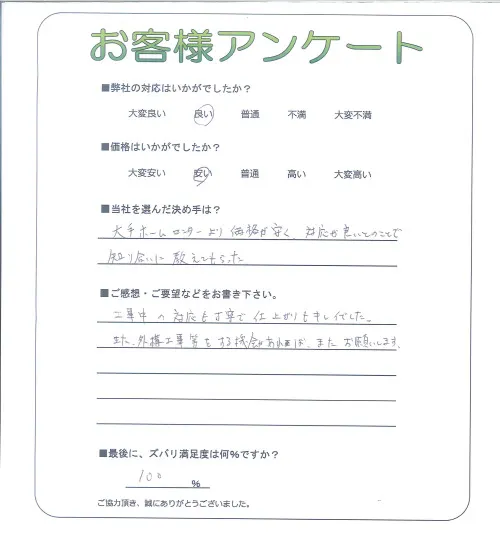 お客様アンケート
■弊社の対応はいかがでしたか？
大変良い 良い 普通 不満 大変不満
■価格はいかがでしたか？
大変安い 安い 普通 高い 大変高い
■当社を選んだ決め手は？
大手ホームセンターより価格が安く、対応が良いとのことで
知り合いに教えてもらった
■ご感想・ご要望などをお書き下さい。
工事中の対応も丁寧で仕上がりもキレイでした。
また、外構工事等をする機会があれば、またお願いします。
■最後に、ズバリ満足度は何%ですか？
100 %
ご協力頂き、誠にありがとうございました。